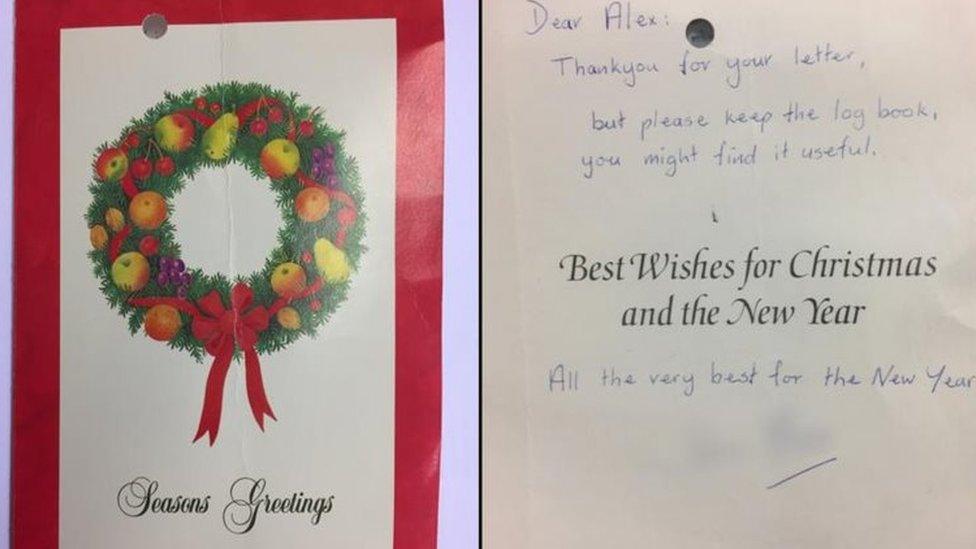 Seasons Greetings
Dear Alex:
Thankyou for your letter,
but please keep the log book,
you might find it useful.
Best Wishes for Christmas
and the New Year
All the very best for the New Year